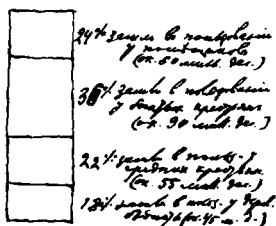 24% земли в пользовании
у помещиков
(ок. 60 милл. дес.)
36% земли в пользовании
у богатых крестьян
(ок. 90 милл. дес.)
22% земли в польз. у
средних крестьян
(ок. 55 милл. дес.)
18% земли в польз. у
(ок. 45 м. д.)